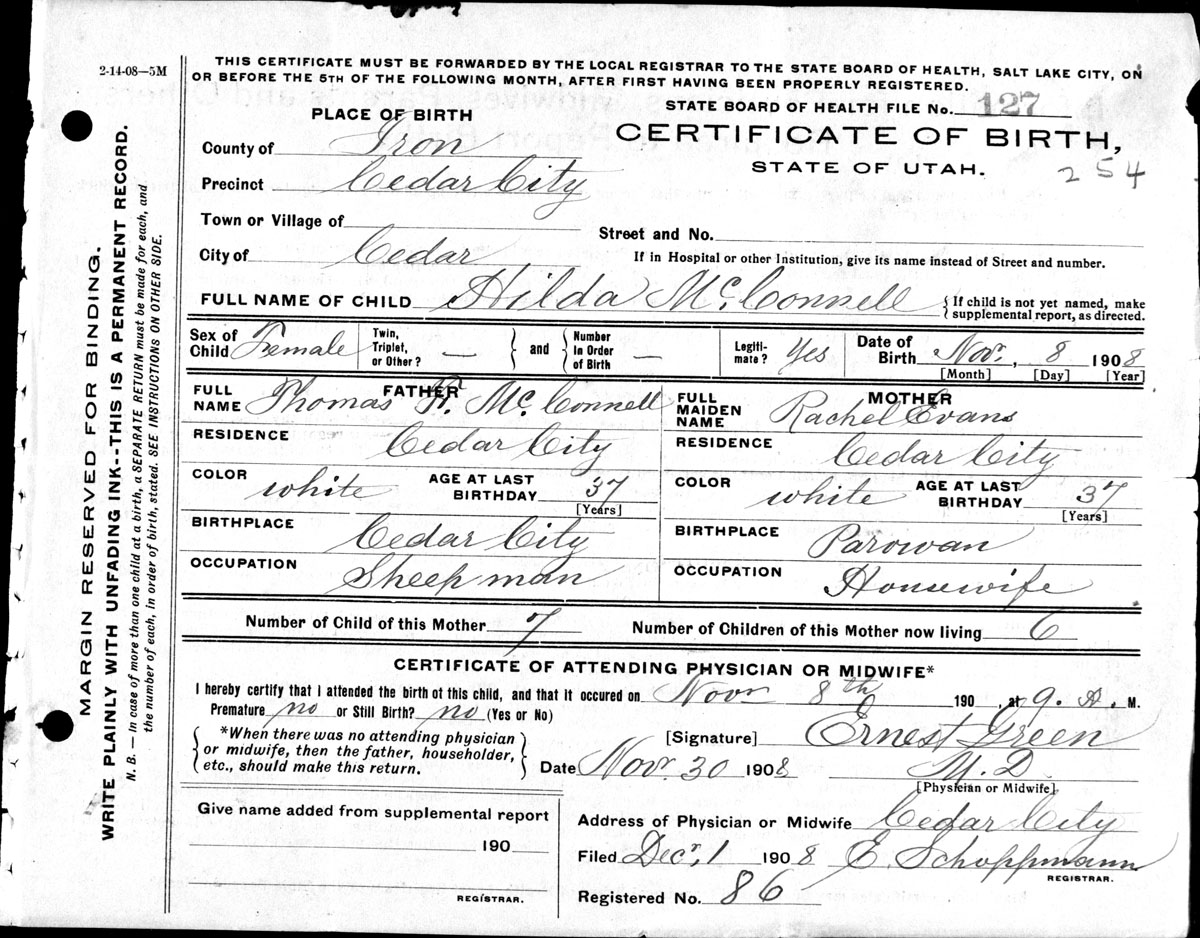 2-14-08—5M
THIS CERTIFICATE MUST BE FORWARDED BY THE LOCAL REGISTRAR TO THE STATE BOARD OF HEALTH, SALT LAKE CITY, ON
OR BEFORE THE 5TH OF THE FOLLOWING MONTH, AFTER FIRST HAVING BEEN PROPERLY REGISTERED.
STATE BOARD OF HEALTH FILE No. 127
PLACE OF BIRTH
CERTIFICATE OF BIRTH,
STATE OF UTAH.
254
County of Iron
Precinct Cedar City
Town or Village of
Street and No.
City of Cedar
If in Hospital or other Institution, give its name instead of Street and number.
FULL NAME OF CHILD Hilda McConnell {If child is not yet named, make supplemental report, as directed.
Sex of Child Female Twin, Triplet, or Other? — } and { Number In Order of Birth — Legiti-mate? Yes Date of Birth Nov. 8 1908
[Month] [Day] [Year]
FATHER
FULL NAME Thomas F. McConnell
RESIDENCE Cedar City
COLOR white AGE AT LAST BIRTHDAY 37
[Years]
BIRTHPLACE Cedar City
OCCUPATION Sheep man
MOTHER
FULL MAIDEN NAME Rachel Evans
RESIDENCE Cedar City
COLOR white AGE AT LAST BIRTHDAY 37
[Years]
BIRTHPLACE Parowan
OCCUPATION Housewife
Number of Child of this Mother 7 Number of Children of this Mother now living 6
CERTIFICATE OF ATTENDING PHYSICIAN OR MIDWIFE*
I hereby certify that I attended the birth of this child, and that it occured on Novr 8th 190 , at 9. A. M.
Premature no or Still Birth? no (Yes or No)
*When there was no attending physician
or midwife, then the father, householder,
etc., should make this return.
[Signature] Ernest Green
Date Nov. 30 1908 M.D
[Physician or Midwife]
Give name added from supplemental report
190
REGISTRAR.
Address of Physician or Midwife Cedar City
Filed Decr, 1 1908 E. Schoppmann
REGISTRAR.
Registered No. 86
MARGIN RESERVED FOR BINDING.
WRITE PLAINLY WITH UNFADING INK--THIS IS A PERMANENT RECORD.
N. B. — In case of more than one child at a birth, a SEPARATE RETURN must be made for each, and
the number of each, in order of birth, stated. SEE INSTRUCTIONS ON OTHER SIDE.